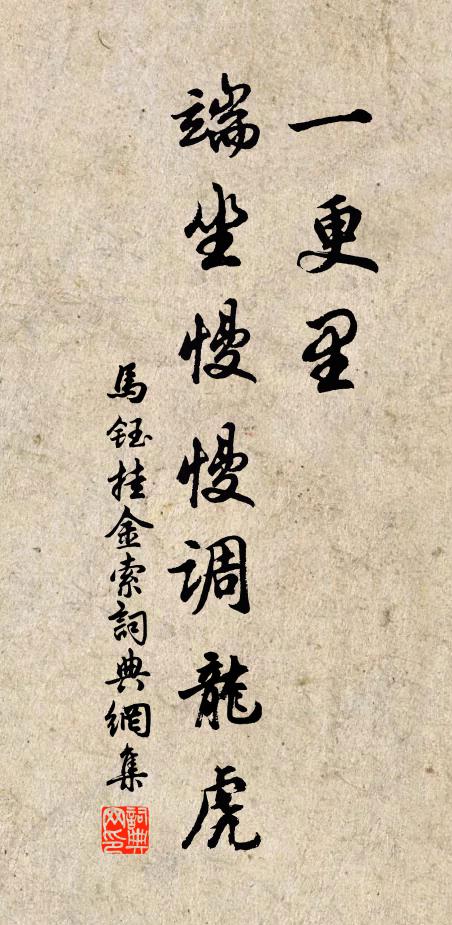 一更里
端坐慢慢調龍虎
馬鈺挂金索詞典網集
詞典网印